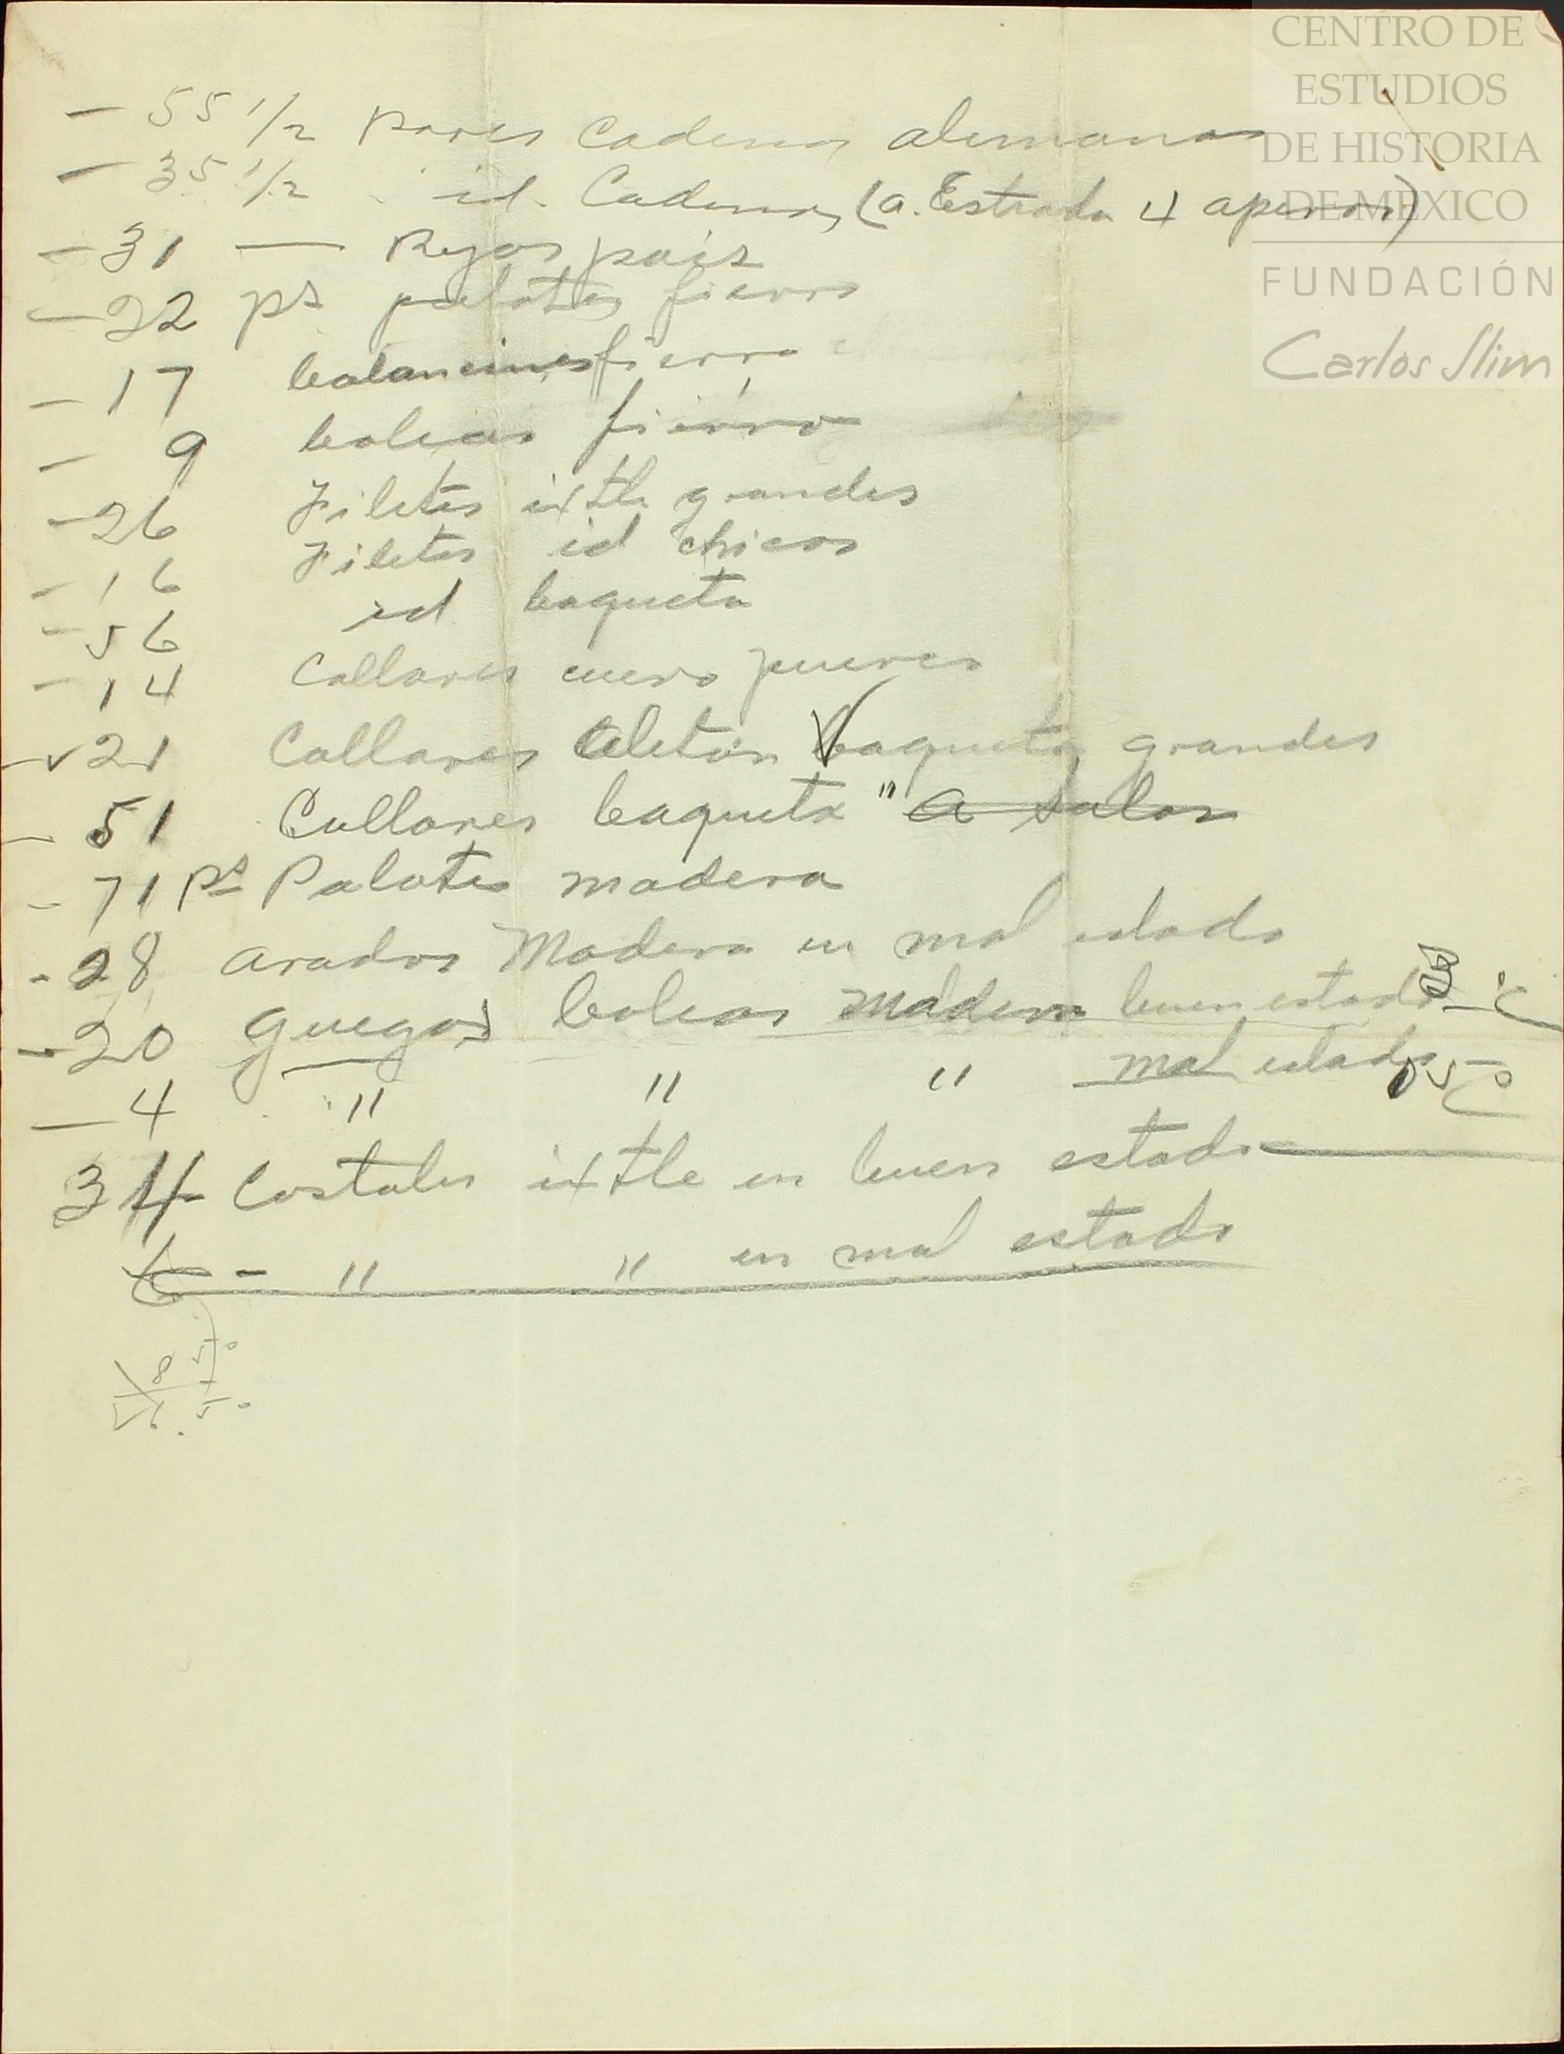 CENTRO DE
ESTUDIOS
DE HISTORIA
DE MEXICO
FUNDACIÓN
Carlos Slim
- 55 1/2 Pares Cadenas alemanas
- 35 1/2 id. Cadenas (a. Estrada 4 aperos)
- 31 — Rejas pais
- 22 ps palotes fierro
- 17 balancines fierro
- 9 boleas fierro
- 26 Filetes ixtle grandes
- 16 Filetes id chicos
- 56 id baqueta
- 14 Collares cuero puerco
- √ 21 Collares Aletón baqueta grandes
- 51 Collares baqueta " a
- 71 ps Palotes madera
- 28 arados Madera en mal estado
- 20 guegos boleas madera buen estado 3
- 4 " " " mal estado
34 Costales ixtle en buen estado
6 - " " en mal estado